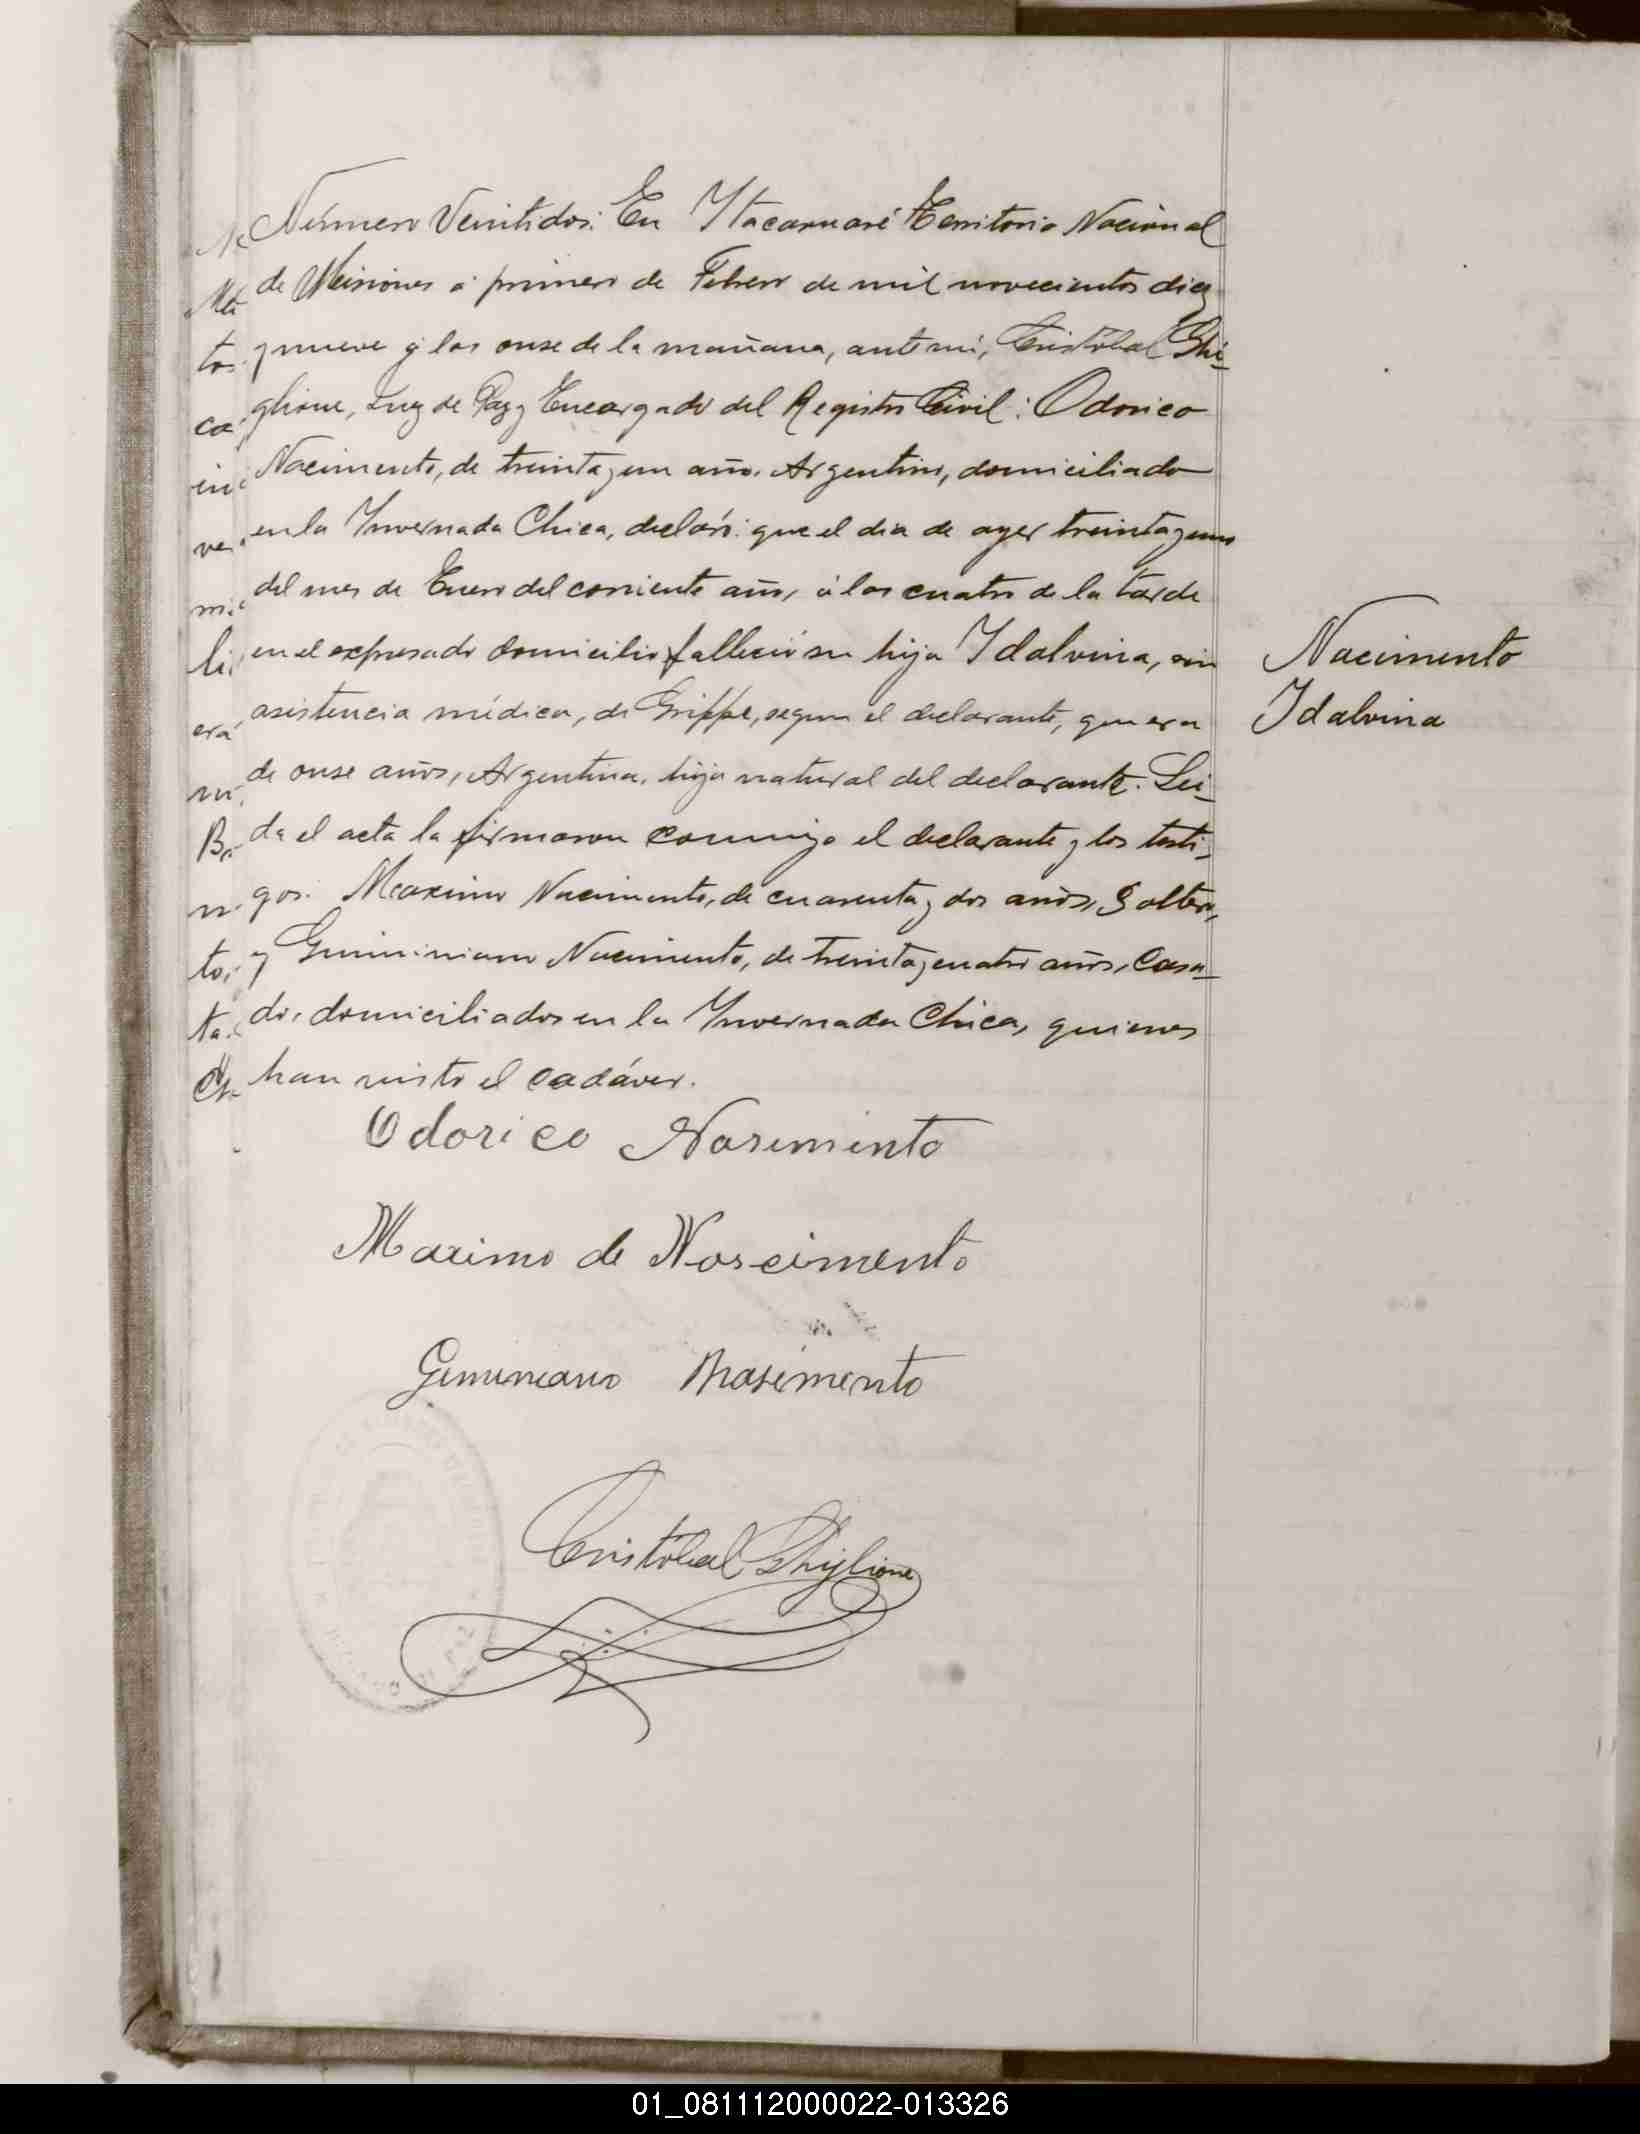 Número Veintidos: En Itacaruaré Territorio Nacional
de Misiones á primero de Febrero de mil novecientos diez
y nueve y las onse de la mañana, ante mi, Cristóbal Ghi-
glione, Juez de Paz y Encargado del Registro Civil: Odorico
Nacimento, de treinta y un años, Argentino, domiciliado
en la Invernada Chica, declaró: que el dia de ayer treinta y uno
del mes de Enero del corriente año, á las cuatro de la tarde
en el expresado domicilio falleció su hija Idalvina, sin
asistencia médica, de Grippe, segun el declarante, que era
de onse años, Argentina, hija natural del declarante. Lei-
da el acta la firmaron conmigo el declarante y los testi-
gos: Maximo Nacimento, de cuarenta y dos años, Soltero,
y Giminiano Nacimento, de treinta y cuatro años, Casa-
do, domiciliados en la Invernada Chica, quienes
han visto el cadáver.
Nacimento
Idalvina
Odorico Nasimento
Maximo de Nascimento
Geminiano Nasimento
Cristóbal Ghiglione
01_081112000022-013326